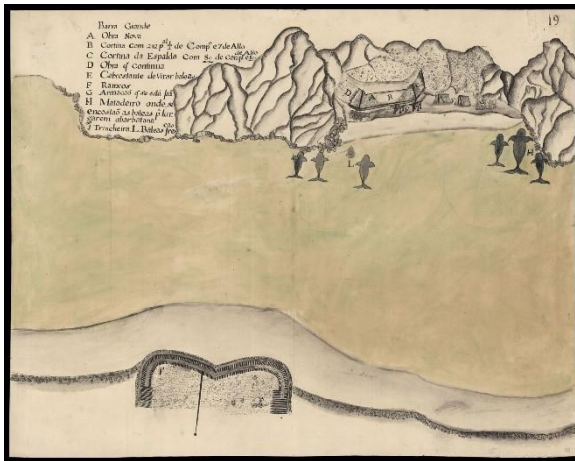 19
Barra Grande
A Obra Nova
B Cortina com 212 p.^al ½ de Comp.^o e 7 de Alto
C Cortina da Espalda com 80 de Comp.^o e
de Alto
D Obra q̃ continua
E Cabrestante de virar baleas
F Ranxos
G Armacaõ q̃ de
H Matadeiro onde se
encostaõ as baleas p.^a lar
garem a barbatana
I Trincheira L Baleas
D A B
H
L